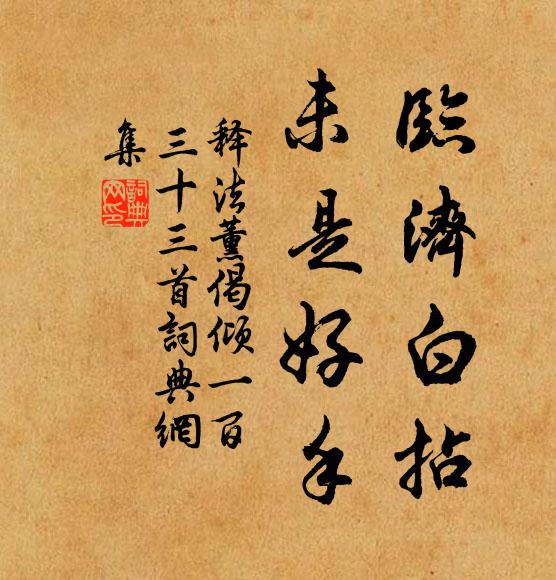 臨濟白拈
未是好手
释法薰偈倾一百
三十三首詞典網
集
詞典
网印